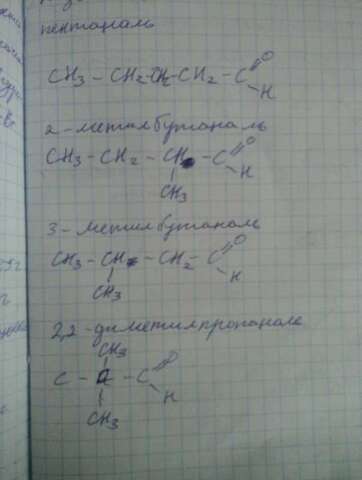 пентаналь
CH₃ – CH₂ CH₂ – CH₂ – C
O
H
2-метилбутаналь
CH₃ – CH₂ – CH – C
O
H
CH₃
3-метилбутаналь
CH₃ – CH – CH₂ – C
O
H
CH₃
2,2-диметилпропаналь
CH₃
C – C – C
O
H
CH₃